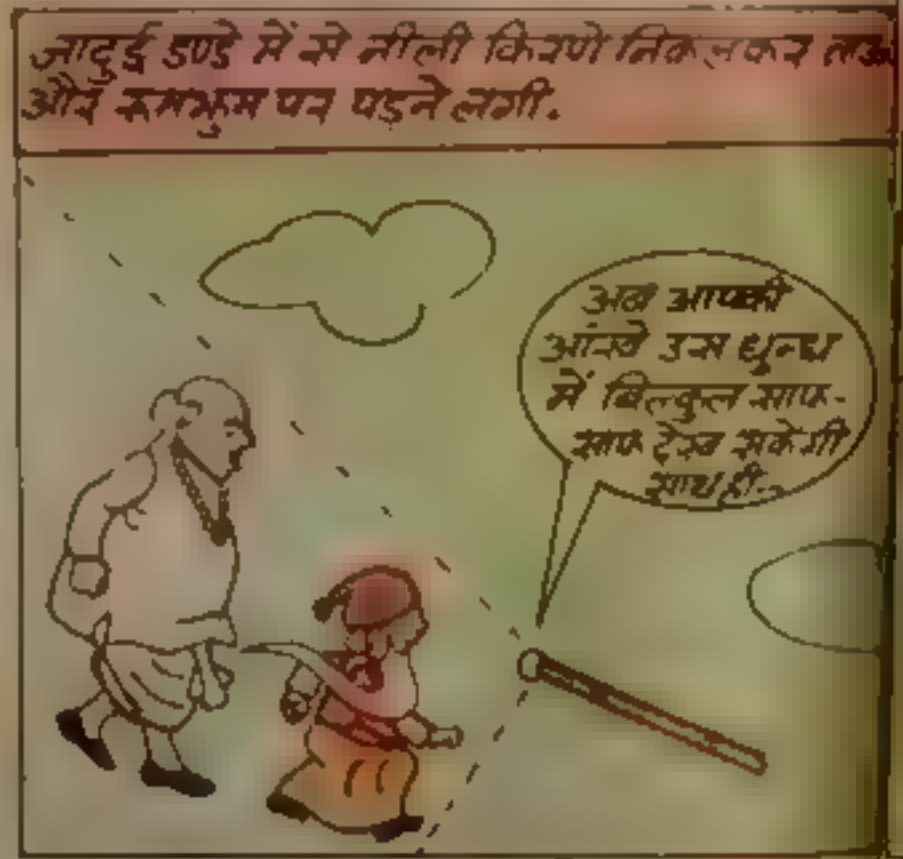 जादुई डण्डे में से नीली किरणे निकलकर
और रूमझुम पर पडने लगी.
अब आपकी
आंखे उस धुन्ध
में बिल्कुल साफ-
साफ देख सकेगी
साथ ही..